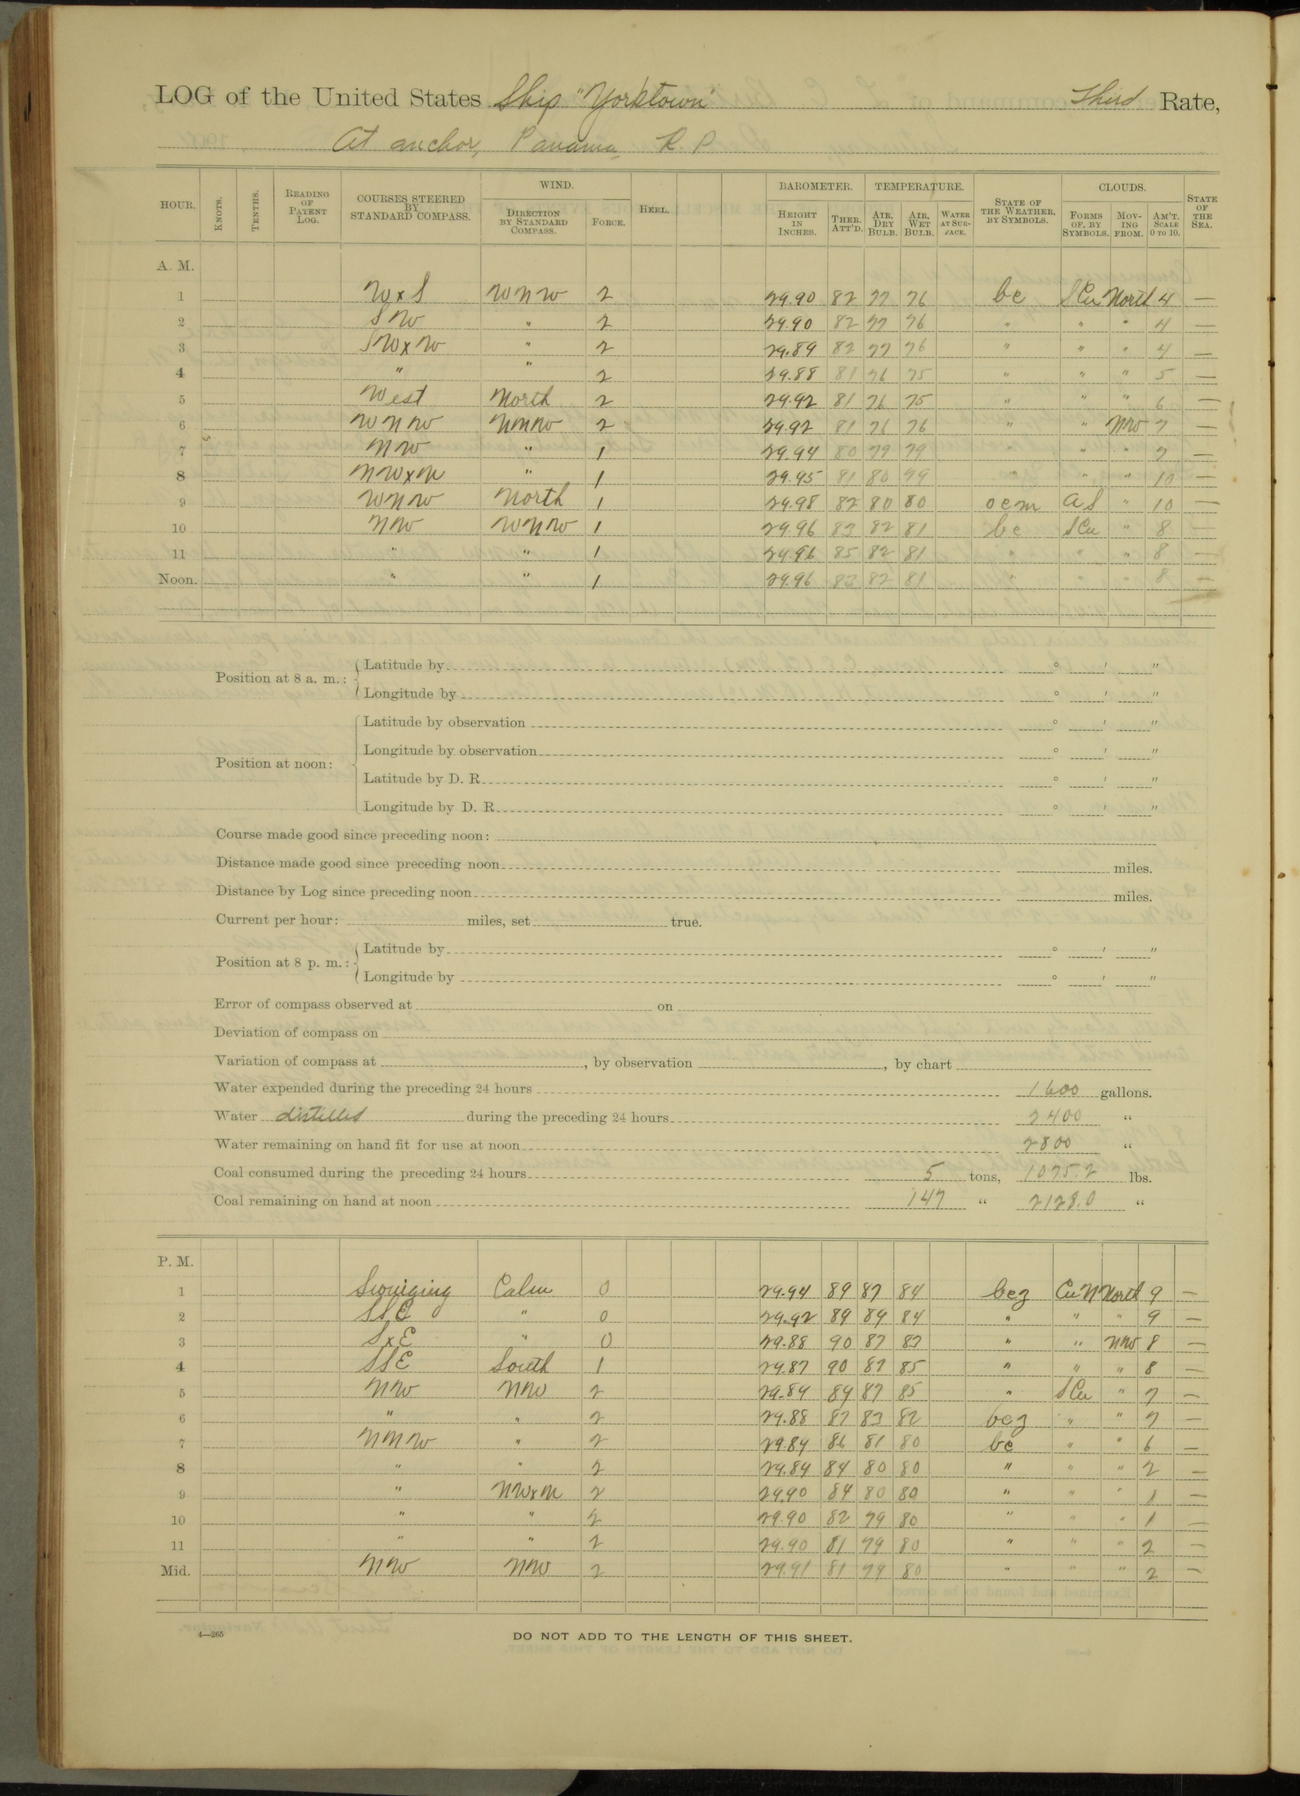 LOG of the United States Ship "Yorktown" Third Rate,
At anchor, Panama, R P
HOUR. KNOTS. TENTHS. READING OF PATENT LOG. COURSES STEERED BY STANDARD COMPASS. WIND. DIRECTION BY STANDARD COMPASS. FORCE. HEEL. BAROMETER. HEIGHT IN INCHES. THER. ATT'D. TEMPERATURE. AIR, DRY BULB. AIR, WET BULB. WATER AT SURFACE. STATE OF THE WEATHER, BY SYMBOLS. CLOUDS. FORMS OF, BY SYMBOLS. MOVING FROM. AM'T. SCALE 0 TO 10. STATE OF THE SEA.
A. M.
1 WxS WNW 2 29.90 82 77 76 bc SCu North 4 —
2 SW " 2 29.90 82 77 76 " " " 4 —
3 SWxW " 2 29.89 82 77 76 " " " 4 —
4 " " 2 29.88 81 76 75 " " " 5 —
5 West North 2 29.92 81 76 75 " " " 6 —
6 WNW NNW 2 29.92 81 76 76 " " NW 7 —
7 NW " 1 29.94 80 79 79 " " " 7 —
8 NWxN " 1 29.95 81 80 79 " " " 10 —
9 WNW North 1 29.98 82 80 80 ocm AS " 10 —
10 NW WNW 1 29.96 83 82 81 bc SCu " 8 —
11 " " 1 29.96 85 82 81 " " " 8 —
Noon. " " 1 29.96 83 82 81 " " " 8 —
Position at 8 a. m.: Latitude by ° ' "
Longitude by ° ' "
Position at noon: Latitude by observation ° ' "
Longitude by observation ° ' "
Latitude by D. R. ° ' "
Longitude by D. R. ° ' "
Course made good since preceding noon:
Distance made good since preceding noon miles.
Distance by Log since preceding noon miles.
Current per hour: miles, set true.
Position at 8 p. m.: Latitude by ° ' "
Longitude by ° ' "
Error of compass observed at on
Deviation of compass on
Variation of compass at , by observation , by chart
Water expended during the preceding 24 hours 1600 gallons.
Water distilled during the preceding 24 hours 2400 "
Water remaining on hand fit for use at noon 2800 "
Coal consumed during the preceding 24 hours 5 tons, 1075.2 lbs.
Coal remaining on hand at noon 147 " 2128.0 "
P. M.
1 Swinging Calm 0 29.94 89 87 84 bcz CuN North 9 —
2 SSE " 0 29.92 89 89 84 " " " 9 —
3 SxE " 0 29.88 90 87 83 " " NW 8 —
4 SSE South 1 29.87 90 87 85 " " " 8 —
5 NW NW 2 29.84 89 87 85 " SCu " 7 —
6 " " 2 29.88 87 83 82 bcz " " 7 —
7 NNW " 2 29.84 86 81 80 bc " " 6 —
8 " " 2 29.89 84 80 80 " " " 2 —
9 " NWxN 2 29.90 84 80 80 " " " 1 —
10 " " 2 29.90 82 79 80 " " " 1 —
11 " " 2 29.90 81 79 80 " " " 2 —
Mid. NW NW 2 29.91 81 79 80 " " " 2 —
4—265
DO NOT ADD TO THE LENGTH OF THIS SHEET.